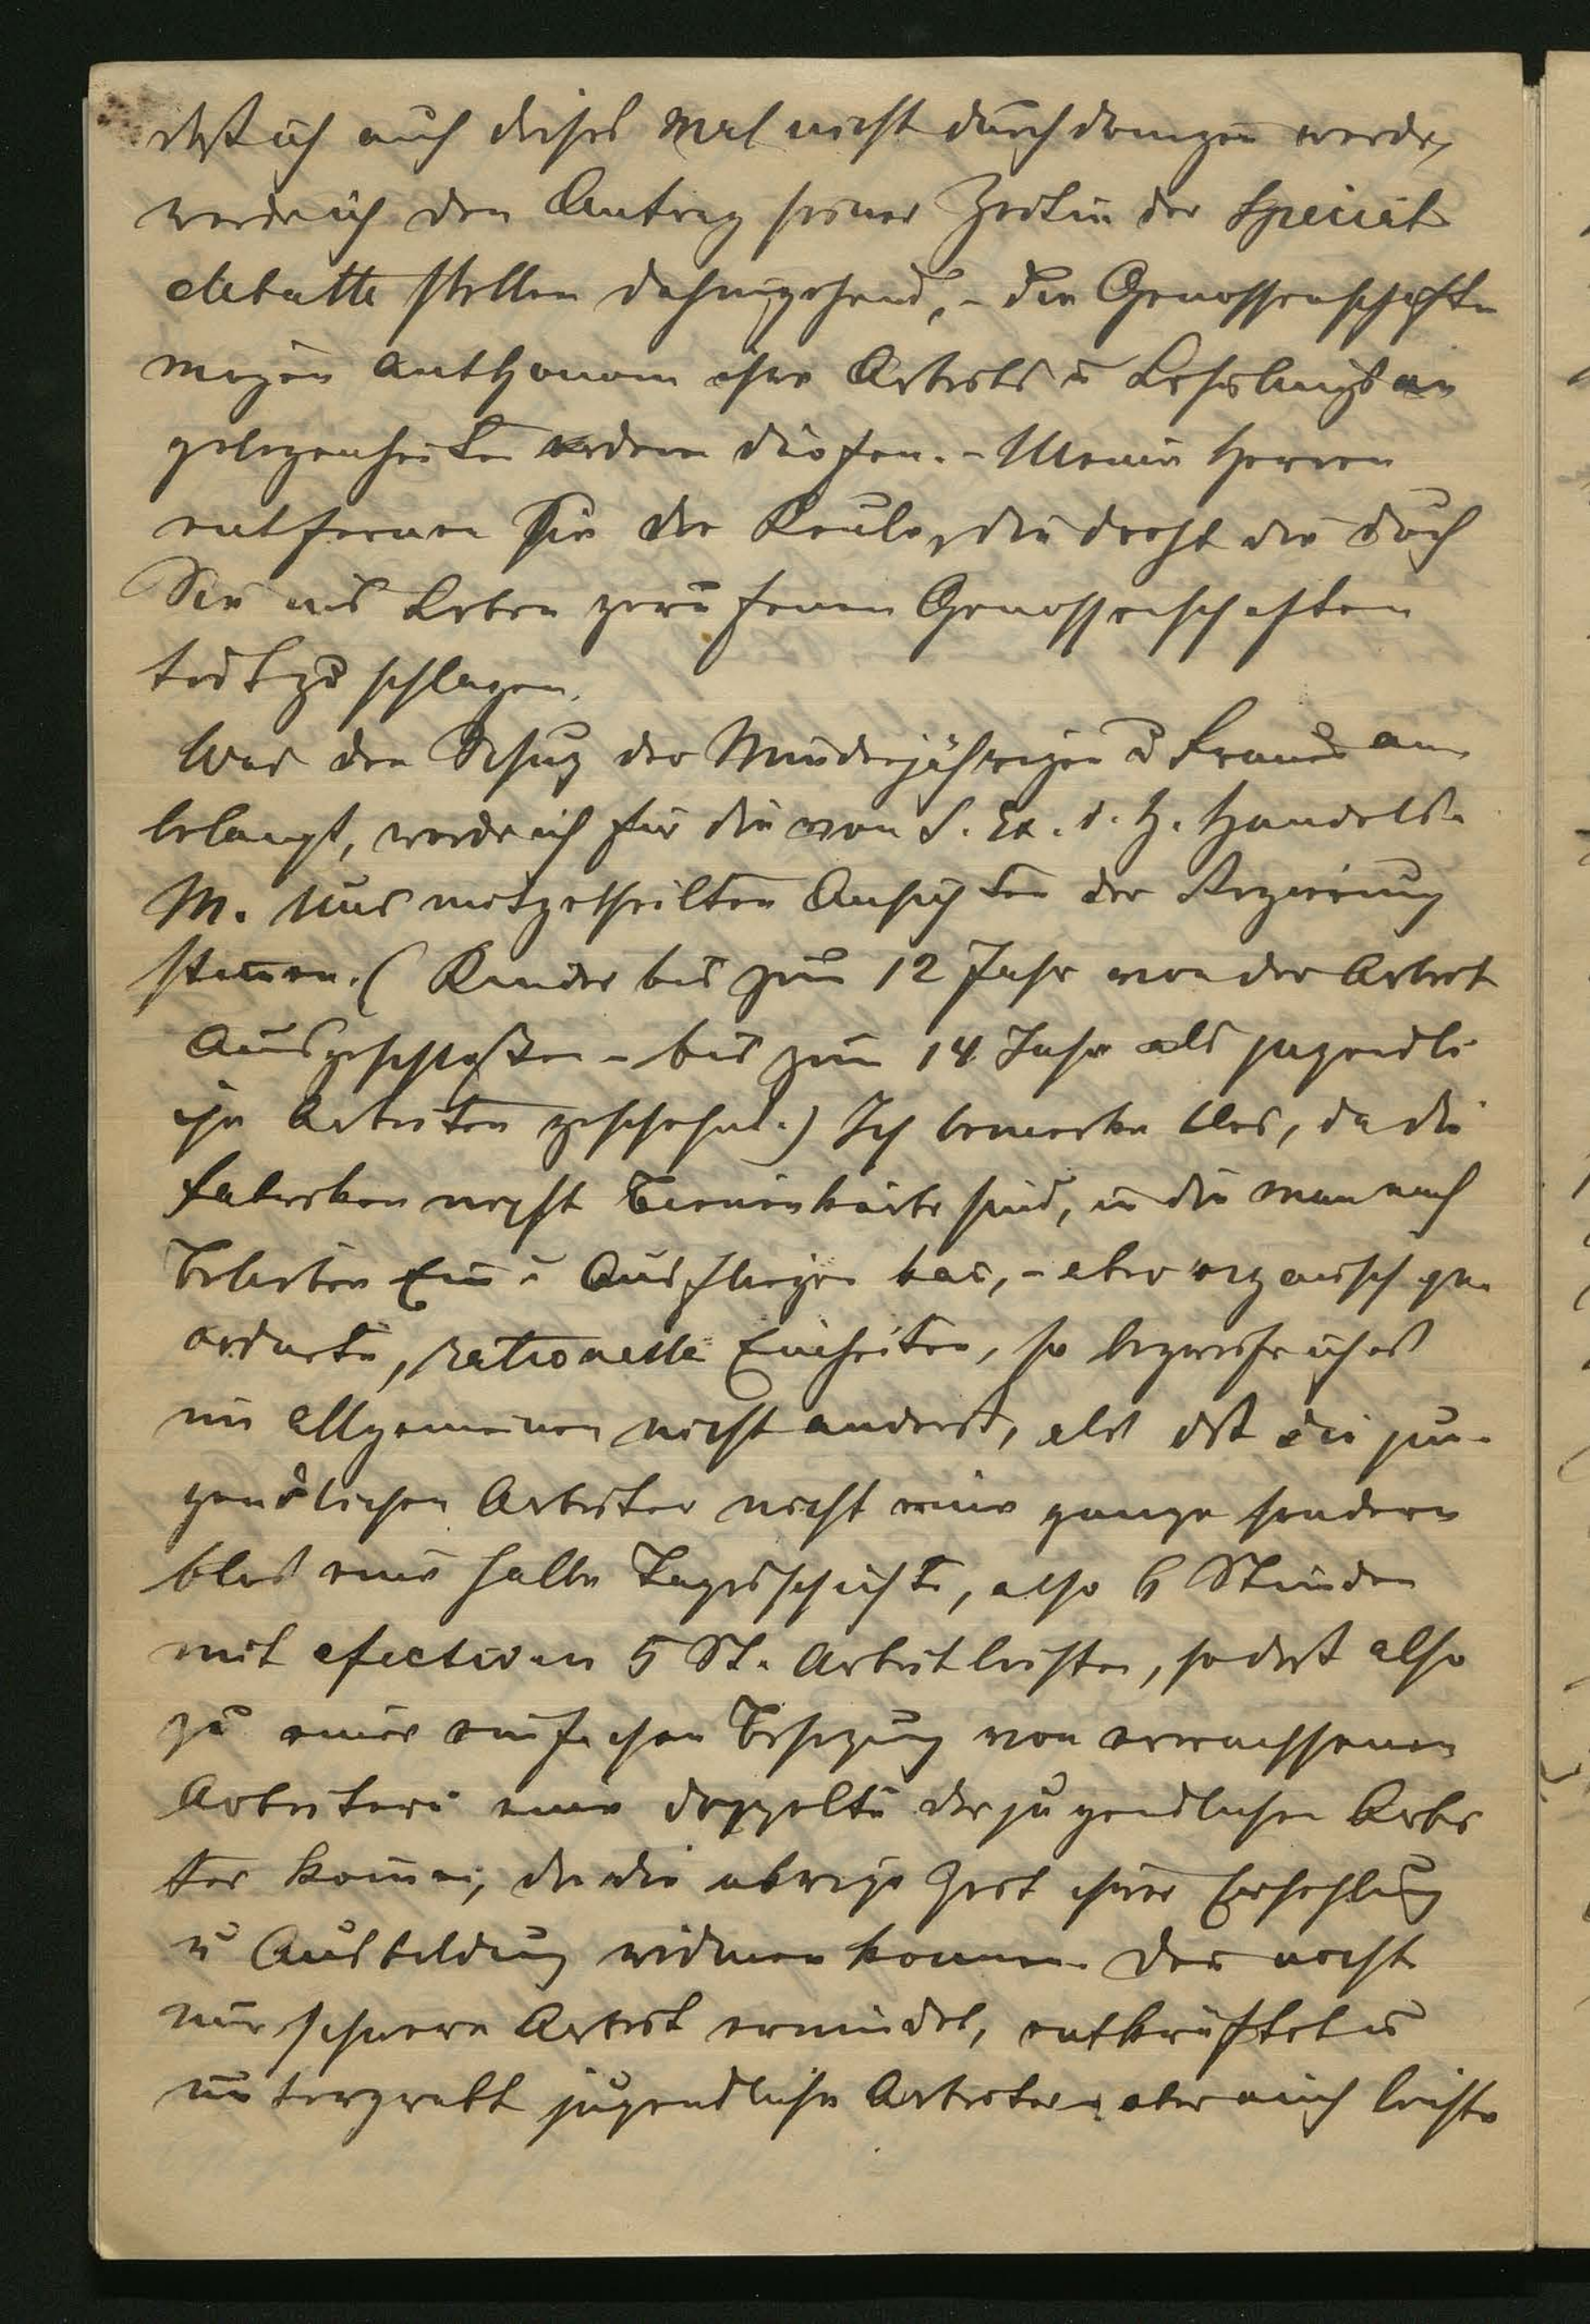 daß ich auch dieses Mal nicht durchdringen werde,
werde ich den Antrag seiner Zeit in der Special
debatte stellen dahingehend, - die Genossenschaften
mögen authonom ihre Arbeits u Lehrlingsan
gelegenheiten ordnen dürfen. - Meine Herren
entfernen Sie die Keule, die droht die durch
Sie ins Leben gerufenen Genossenschaften
todt zu schlagen.
Was den Schuz der Minderjährigen u Frauen an
belangt, werde ich für die von S. Ex. d. H. Handels-
M. Uns mitgetheilten Ansichten der Regierung
stimen. (Kinder bis zum 12 Jahr von der Arbeit
Ausgeschloßen - bis zum 14 Jahr als jugendli
che Arbeiter geschehnt.) Ich bemerke blos, da die
Fabriken nicht Bienenkörbe sind, in die man nach
Belieben Ein u Ausfliegen kan, - aber organisch ge
ordnete, rationelle Einheiten, so begreife ich es
im Allgemeinen nicht anders, als daß die ju-
gendlichen Arbeiter nicht eine ganze sondern
blos eine halbe Tagesschichte, also 6 Stunden
mit efectiven 5 St. Arbeit leisten, so daß also
zu einer einfachen Besezung von erwachssenen
Arbeitern eine doppelte der jugendlichen Arbei
ter kome, da die übrige Zeit ihrer Erhohlung
u Ausbildung widmen konnen. Den nicht
nur schwere Arbeit ermüdet, entkräftet u
untergrabt jugendliche Arbeiter, aber auch leichte